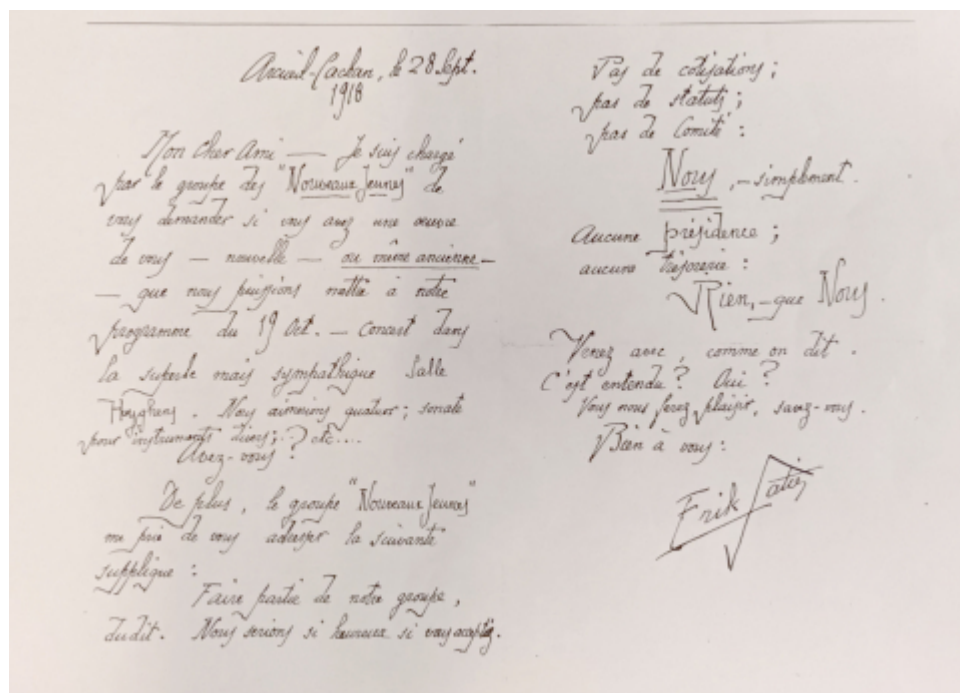 Arcueil-Cachan, le 28 Sept.
1918
Mon Cher Ami — Je suis chargé
par le groupe des "Nouveaux Jeunes" de
vous demander si vous avez une œuvre
de vous — nouvelle — ou même ancienne —
— que nous puissions mettre à notre
programme du 19 Oct. — concert dans
la superbe mais sympathique Salle
Huyghens. Nous aimerions quatuor; sonate
pour instruments divers; ..? etc....
Avez-vous?
De plus, le groupe "Nouveaux Jeunes"
me prie de vous adresser la suivante
supplique :
Faire partie de notre groupe,
dudit. Nous serions si heureux si vous acceptiez.
Pas de cotisations;
pas de statuts;
pas de Comité :
Nous, — simplement.
Aucune présidence;
aucune trésorerie :
Rien, — que Nous.
Venez avec, comme on dit.
C'est entendu? Oui?
Vous nous ferez plaisir, savez-vous.
Bien à vous :
Erik Satie